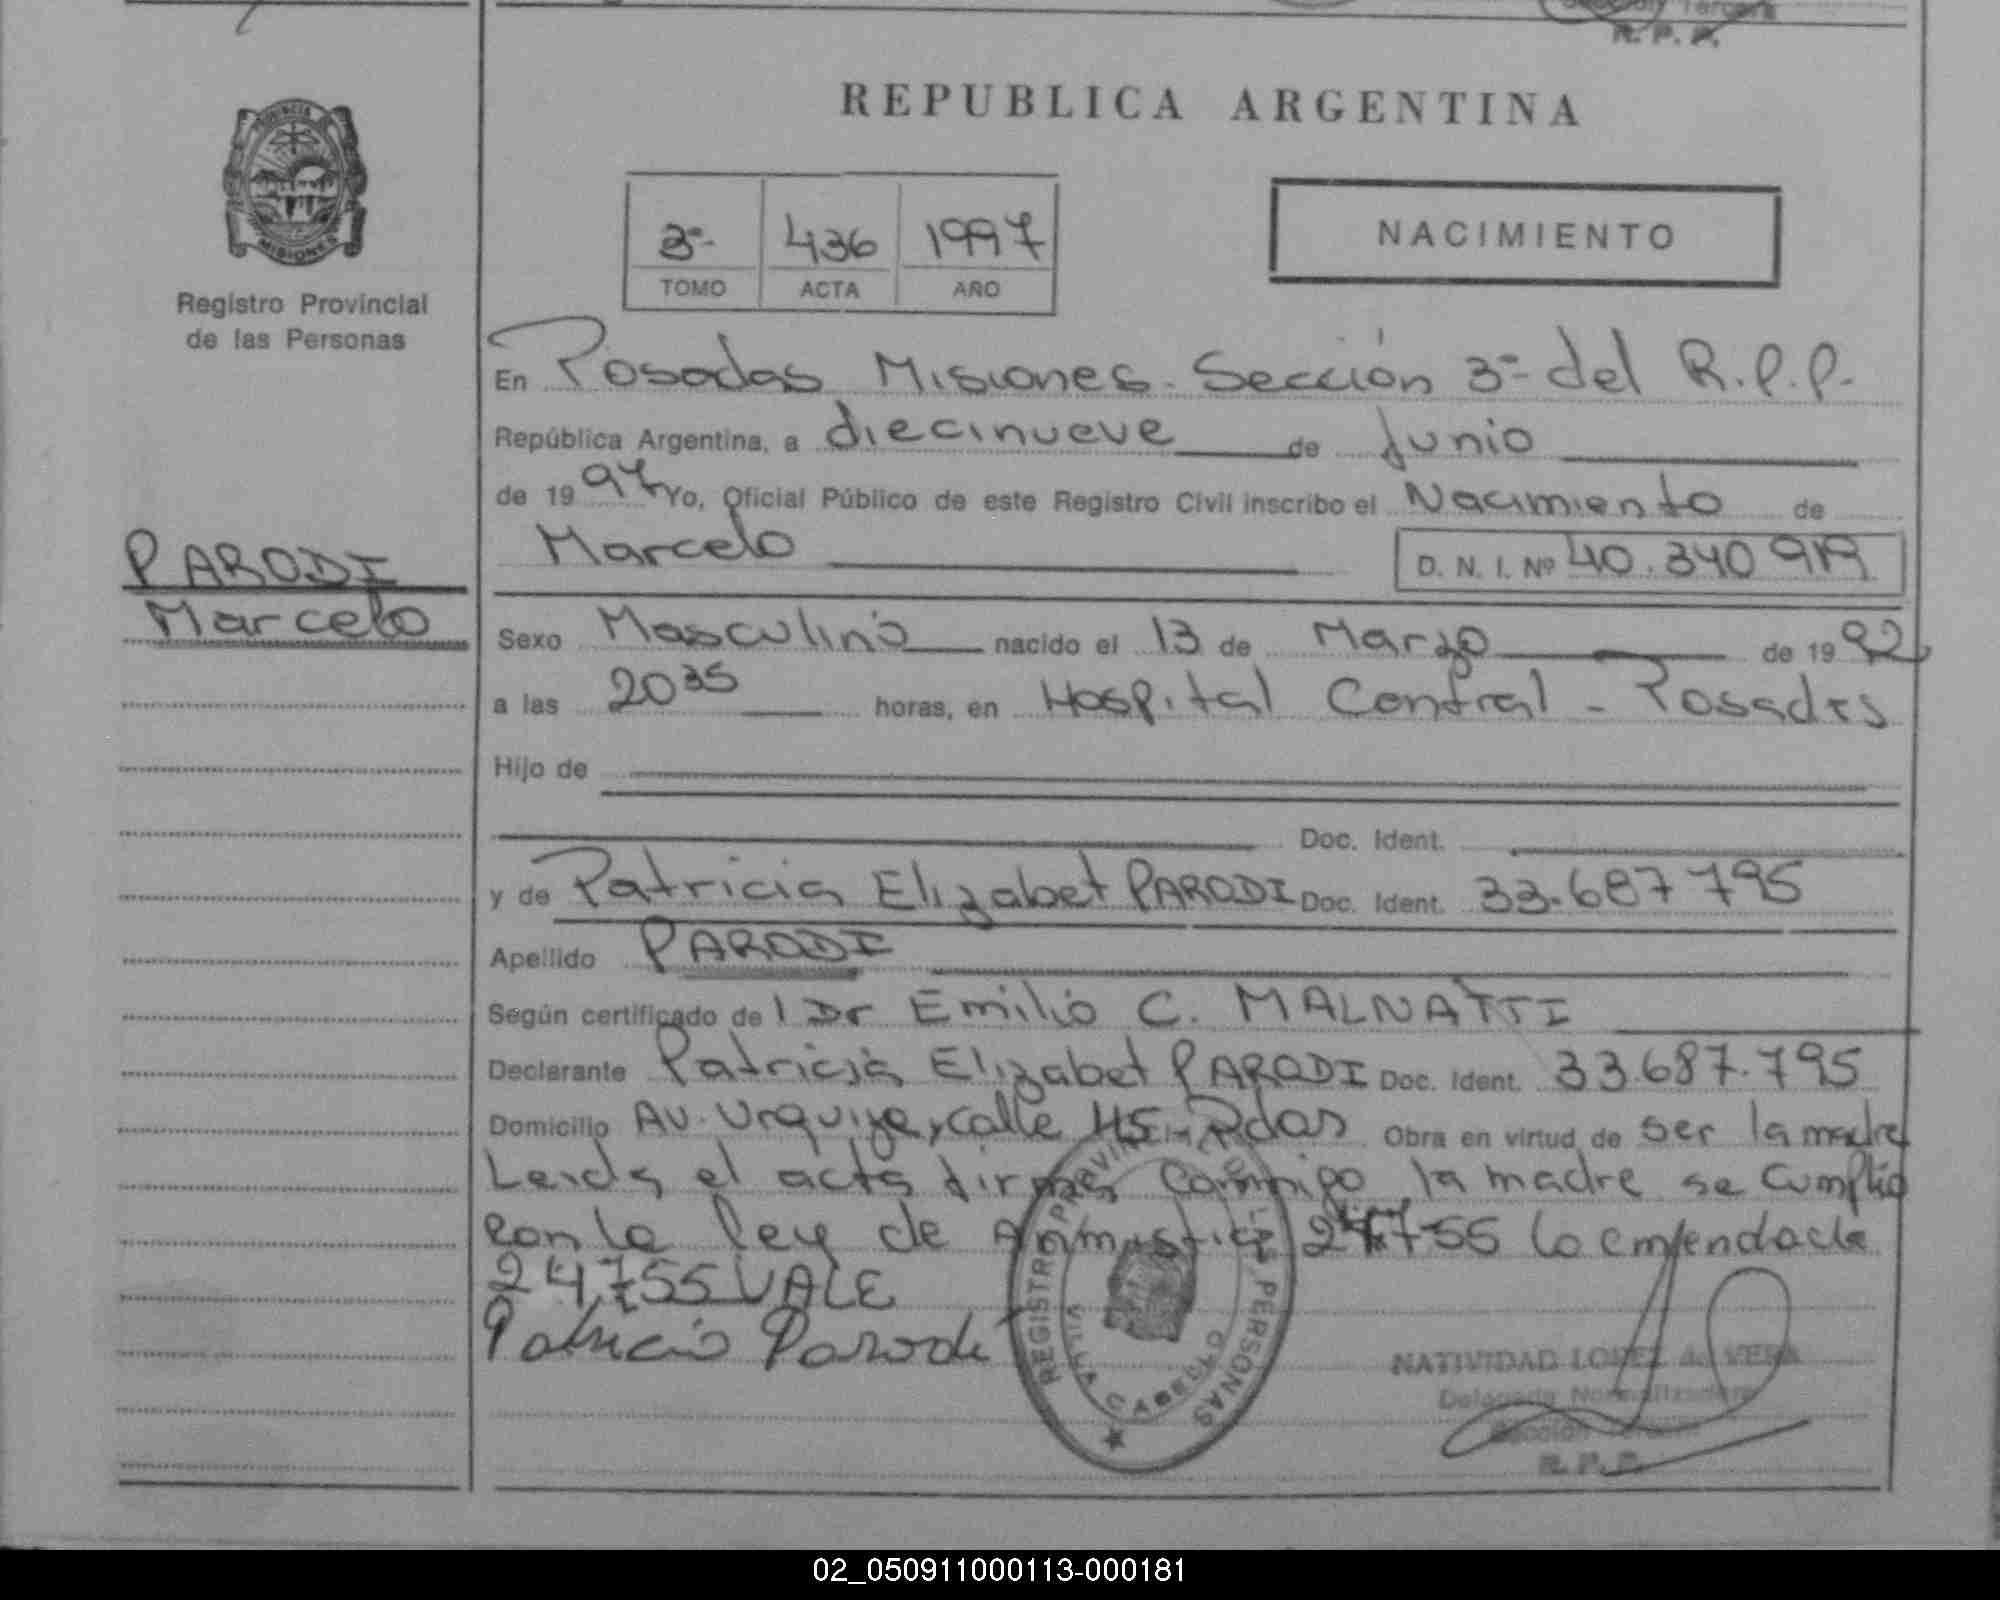 R. P. P.
REPUBLICA ARGENTINA
PROVINCIA
MISIONES
Registro Provincial
de las Personas
3º- 436 1997
TOMO ACTA AÑO
NACIMIENTO
En Posadas Misiones. Sección 3º- del R.P.P.-
República Argentina, a diecinueve de Junio
de 1997 Yo, Oficial Público de este Registro Civil inscribo el Nacimiento de
Marcelo D. N. I. Nº 40.340 919
PARODI
Marcelo
Sexo Masculino nacido el 13 de Marzo de 1992
a las 20 35 horas, en Hospital Central - Posadas
Hijo de
Doc. Ident.
y de Patricia Elizabet PARODI Doc. Ident. 33.687 795
Apellido PARODI
Según certificado de l Dr Emilio C. MALNATTI
Declarante Patricia Elizabet PARODI Doc. Ident. 33.687.795
Domicilio Av. Urquiza y calle 115 - Pdas Obra en virtud de ser la madre
Leida el acta firma conmigo la madre se cumplio
con la ley de Amnistia 24755 lo enmendado
24.755 VALE
Patricia Parodi
REGISTRO PROVINCIAL DE LAS PERSONAS
VILLA CABELLO
NATIVIDAD LOPEZ de VERA
Delegada Normalizadora
Sección Tercera
R. P. P.
02_050911000113-000181